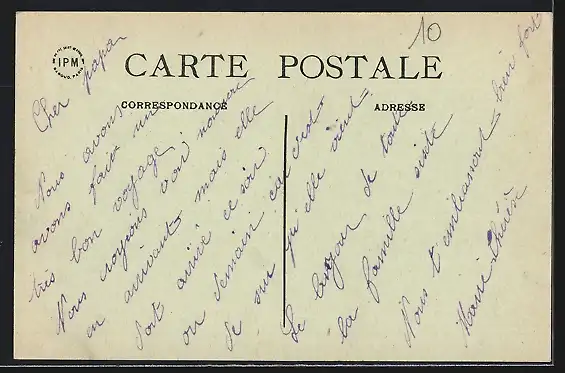 10
IPM
CARTE POSTALE
CORRESPONDANCE
ADRESSE
Cher papa
Nous avons
avons fait un
très bon voyage,
Nous croyions voir
en arrivant mais elle
doit arrivé ce soir
ou demain car c'est
de qu'elle vient
Le bonjour de toute
la famille
Nous t'embrassent bien fort
Marie Thérèse